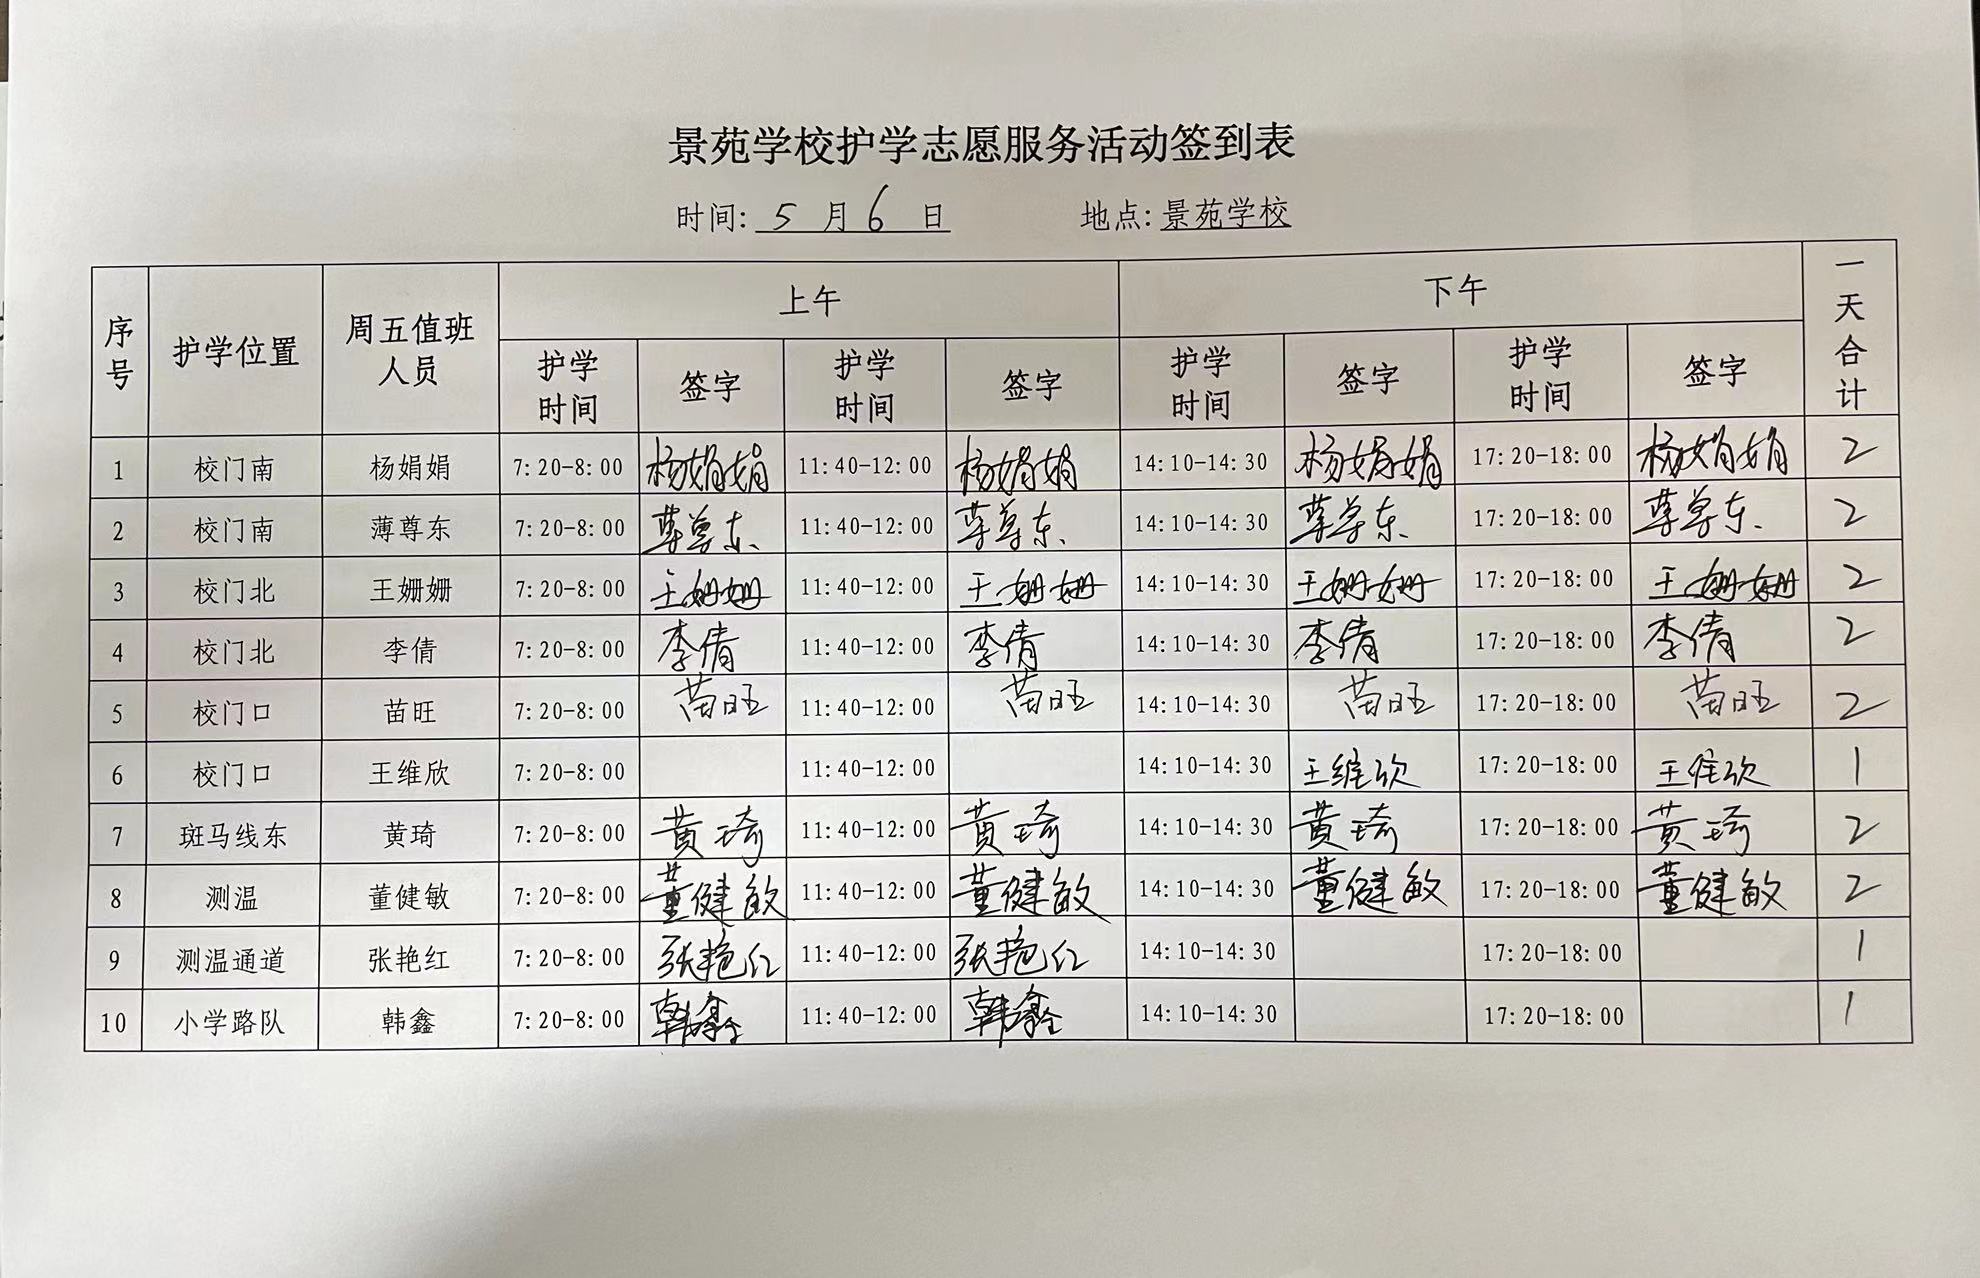 景苑学校护学志愿服务活动签到表
时间: 5 月 6 日 地点: 景苑学校
序号 护学位置 周五值班人员 上午 下午 一天合计
护学时间 签字 护学时间 签字 护学时间 签字 护学时间 签字
1 校门南 杨娟娟 7:20-8:00 杨娟娟 11:40-12:00 杨娟娟 14:10-14:30 杨娟娟 17:20-18:00 杨娟娟 2
2 校门南 薄尊东 7:20-8:00 尊东 11:40-12:00 尊东 14:10-14:30 尊东 17:20-18:00 尊东 2
3 校门北 王姗姗 7:20-8:00 王姗姗 11:40-12:00 王姗姗 14:10-14:30 王姗姗 17:20-18:00 王姗姗 2
4 校门北 李倩 7:20-8:00 李倩 11:40-12:00 李倩 14:10-14:30 李倩 17:20-18:00 李倩 2
5 校门口 苗旺 7:20-8:00 苗旺 11:40-12:00 苗旺 14:10-14:30 苗旺 17:20-18:00 苗旺 2
6 校门口 王维欣 7:20-8:00 11:40-12:00 14:10-14:30 王维欣 17:20-18:00 王维欣 1
7 斑马线东 黄琦 7:20-8:00 黄琦 11:40-12:00 黄琦 14:10-14:30 黄琦 17:20-18:00 黄琦 2
8 测温 董健敏 7:20-8:00 董健敏 11:40-12:00 董健敏 14:10-14:30 董健敏 17:20-18:00 董健敏 2
9 测温通道 张艳红 7:20-8:00 张艳红 11:40-12:00 张艳红 14:10-14:30 17:20-18:00 1
10 小学路队 韩鑫 7:20-8:00 韩鑫 11:40-12:00 韩鑫 14:10-14:30 17:20-18:00 1